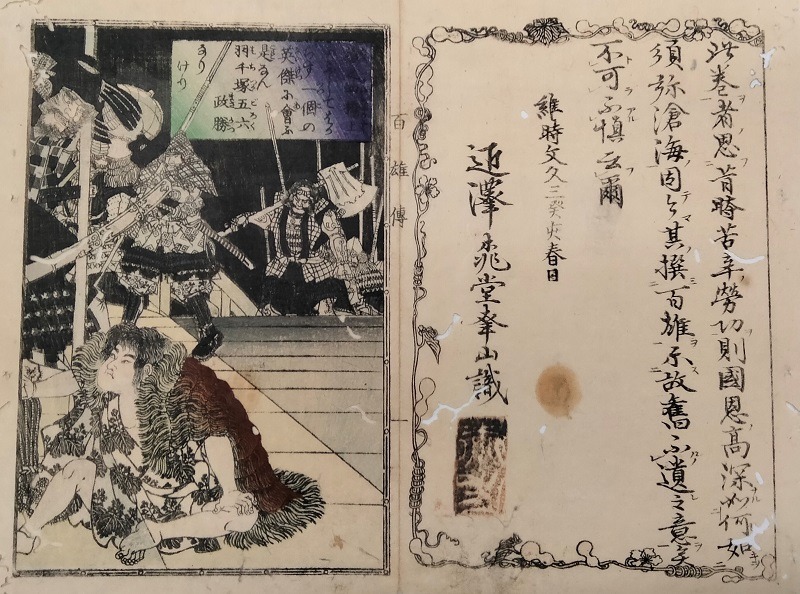 此巻者思昔時苦辛勞功則國恩高深如何如
須弥滄海因之其撰百雄
故舊不遺之意
不可不慎云爾
維時文久三癸亥春日
堂峯山識
百雄傳
一
一個の
英傑に會ふ
是なん
羽千塚五六
政勝
なり
けり